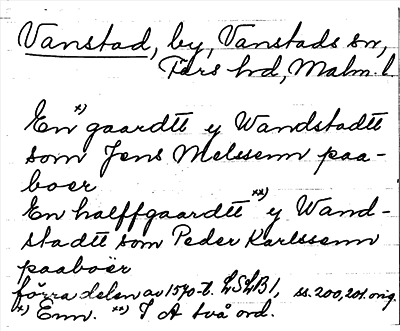 Vanstad, by, Vanstads sn,
Färs hd, Malm. l.
En x) gaardtt y Wandstadtt
som Jens Melssenn paa-
boer
En halffgaardtt xx) y Wand-
stadtt som Peder Karlssenn
paaboër
förra delen av 1570-t. LSLB1, ss. 200, 201. orig.
x) Enn. xx) I A två ord.